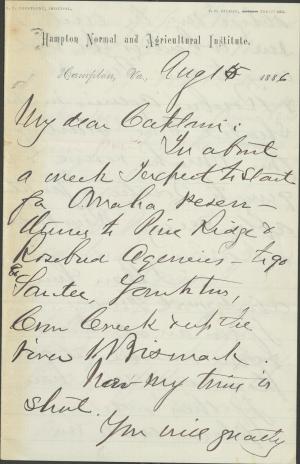 Hampton Normal and Agricultural Institute.
Hampton, Va., Aug 15 1886
My dear Captain:
In about
a week I expect to start
for Omaha reser-
to Pine Ridge &
Rosebud Agencies - to go
to Santee, Yankton,
Crow Creek & up the
river to Bismark.
Now my time is
short.
You will greatly